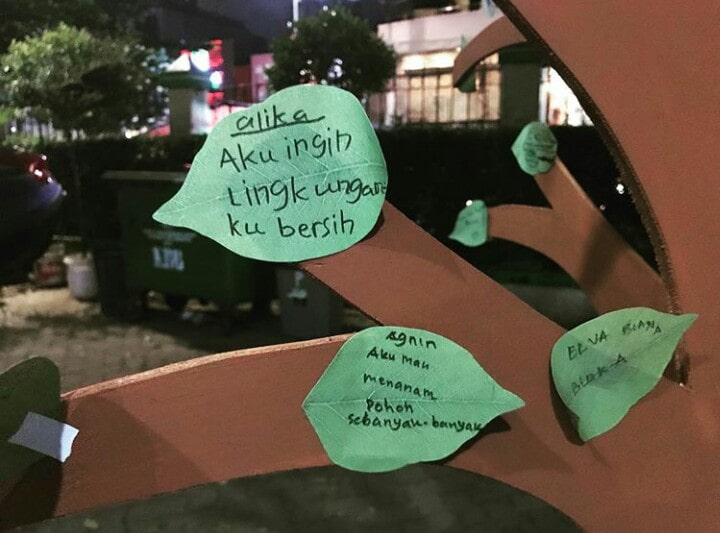 alika
Aku ingin
Lingkungan
ku bersih
Agnin
Aku mau
menanam
Pohon
sebanyak-banyak
ELVA
BLOK-A